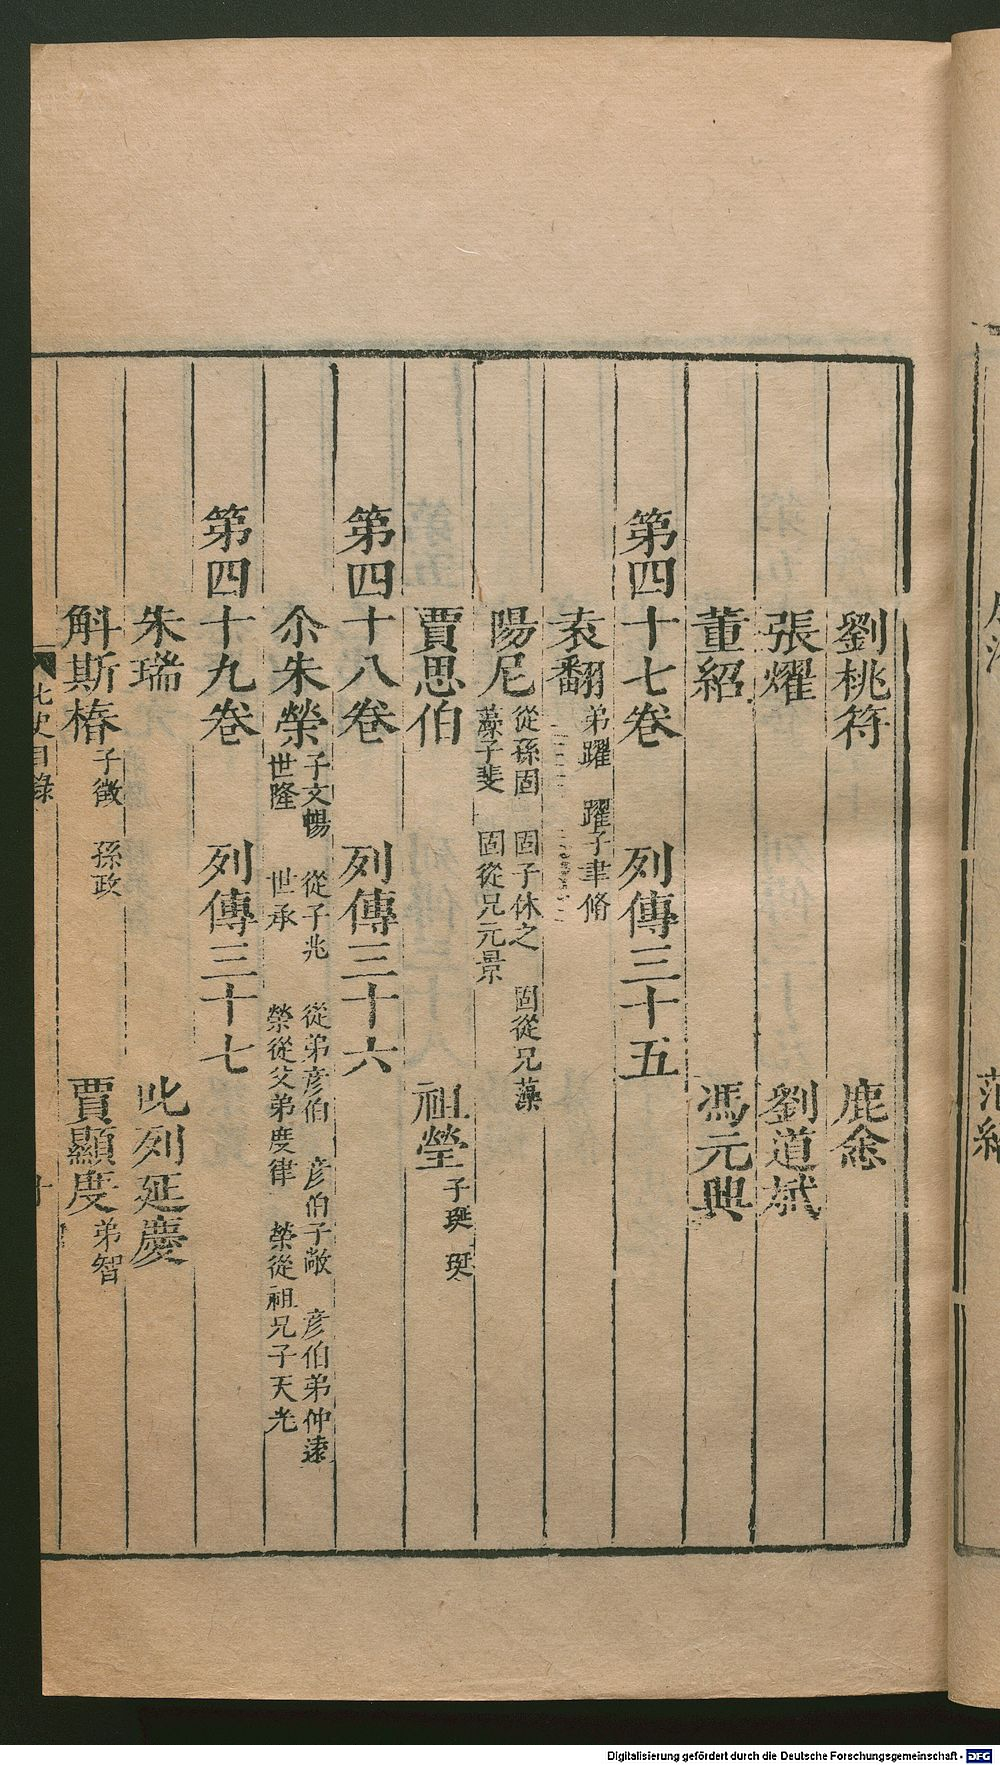 劉桃符　鹿悆
張燿　劉道斌
董紹　馮元興
第四十七卷　列傳三十五
袁翻　弟躍　躍子聿脩
陽尼　從孫固　固子休之　固從兄藻
藻子斐　固從兄元景
賈思伯　祖瑩　子珽　珽
第四十八卷　列傳三十六
尒朱榮　子文暢　從子兆　從弟彥伯　彥伯子敞　彥伯弟仲遠
世隆　世承　榮從父弟度律　榮從祖兄子天光
第四十九卷　列傳三十七
朱瑞　叱列延慶
斛斯椿　子徵　孫政　賈顯度　弟智
北史目錄
Digitalisierung gefördert durch die Deutsche Forschungsgemeinschaft - DFG